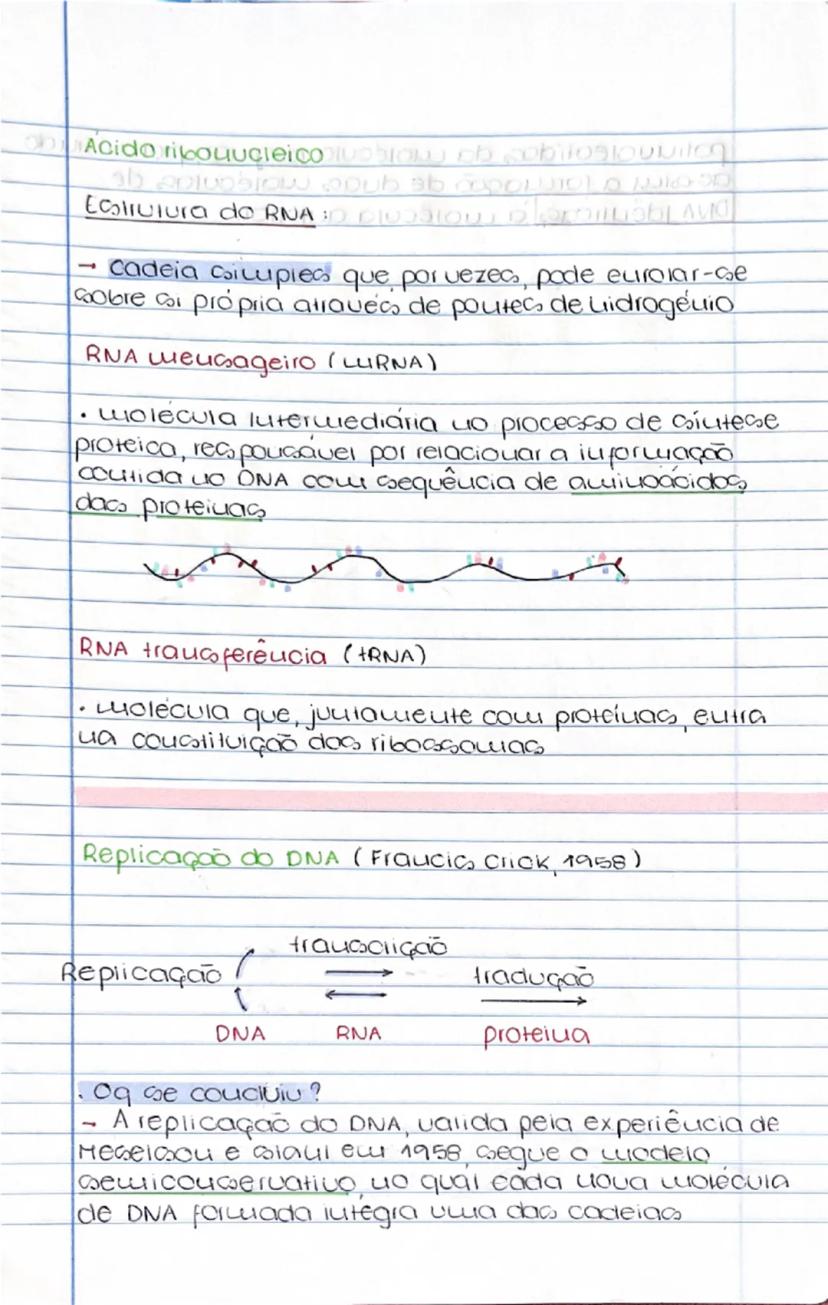 Ácido ribonucleico
Estrutura do RNA:
→ cadeia simples que, por vezes, pode enrolar-se
sobre si própria através de pontes de hidrogénio
RNA mensageiro (mRNA)
• molécula intermediária no processo de síntese
proteica, responsável por relacionar a informação
contida no DNA com sequência de aminoácidos
das proteinas
RNA transferência (tRNA)
• molécula que, juntamente com proteínas, entra
na constituição dos ribossomas
Replicação do DNA (Francis Crick, 1958)
transcrição
Replicação tradução
DNA RNA proteina
• Oq se concluiu?
- A replicação do DNA, valida pela experiência de
Meselson e Stahl em 1958, segue o modelo
semiconservativo, no qual cada nova molécula
de DNA formada íntegra uma das cadeias